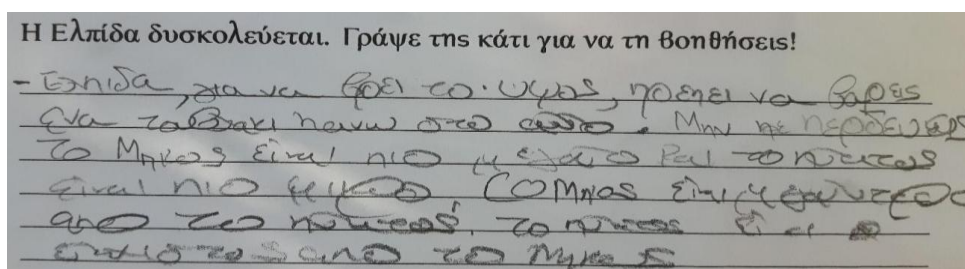 Η Ελπίδα δυσκολεύεται. Γράψε της κάτι για να τη βοηθήσεις!
- Ελπιδα, για να βρει το υψος, πρεπει να βαρεις
ενα τουβλακι πανω στο αυτο. Μην περδευερε
Το Μηκος ειναι πιο μεγαλο και το πλατος
ειναι πιο μικρο. Το Μηκος ειναι μεγαλυτερο
απο το πλατος. το πλατος
απο το Μηκος